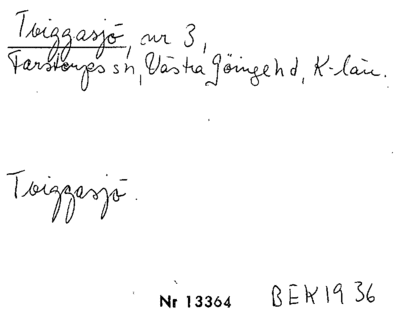 Tviggasjö, nr 3,
Farstorps sn, Västra Göinge hd, K-län.
Tviggasjö.
Nr 13364 BEH 1936